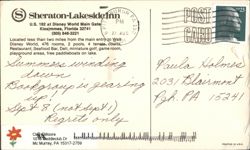 Sheraton-Lakeside Inn
U.S. 192 at Disney World Main Gate
Kissimmee, Florida 32741
(305) 846-3221
Located less than two miles from the main entrance to Walt
Disney World, 476 rooms, 2 pools, 4 tennis courts,
Restaurant, Snack Bar, Deli, miniature golf, game room,
playground areas, free paddleboats on lake.
PM
27 AUG
POST
CARD
Summers winding
down
Background going
up
Sept 8 (not sept)
Regrets only
Paula Holmes
2031 Blairmont
Pgh. PA 15241
Mc Murray, PA 15317-2759